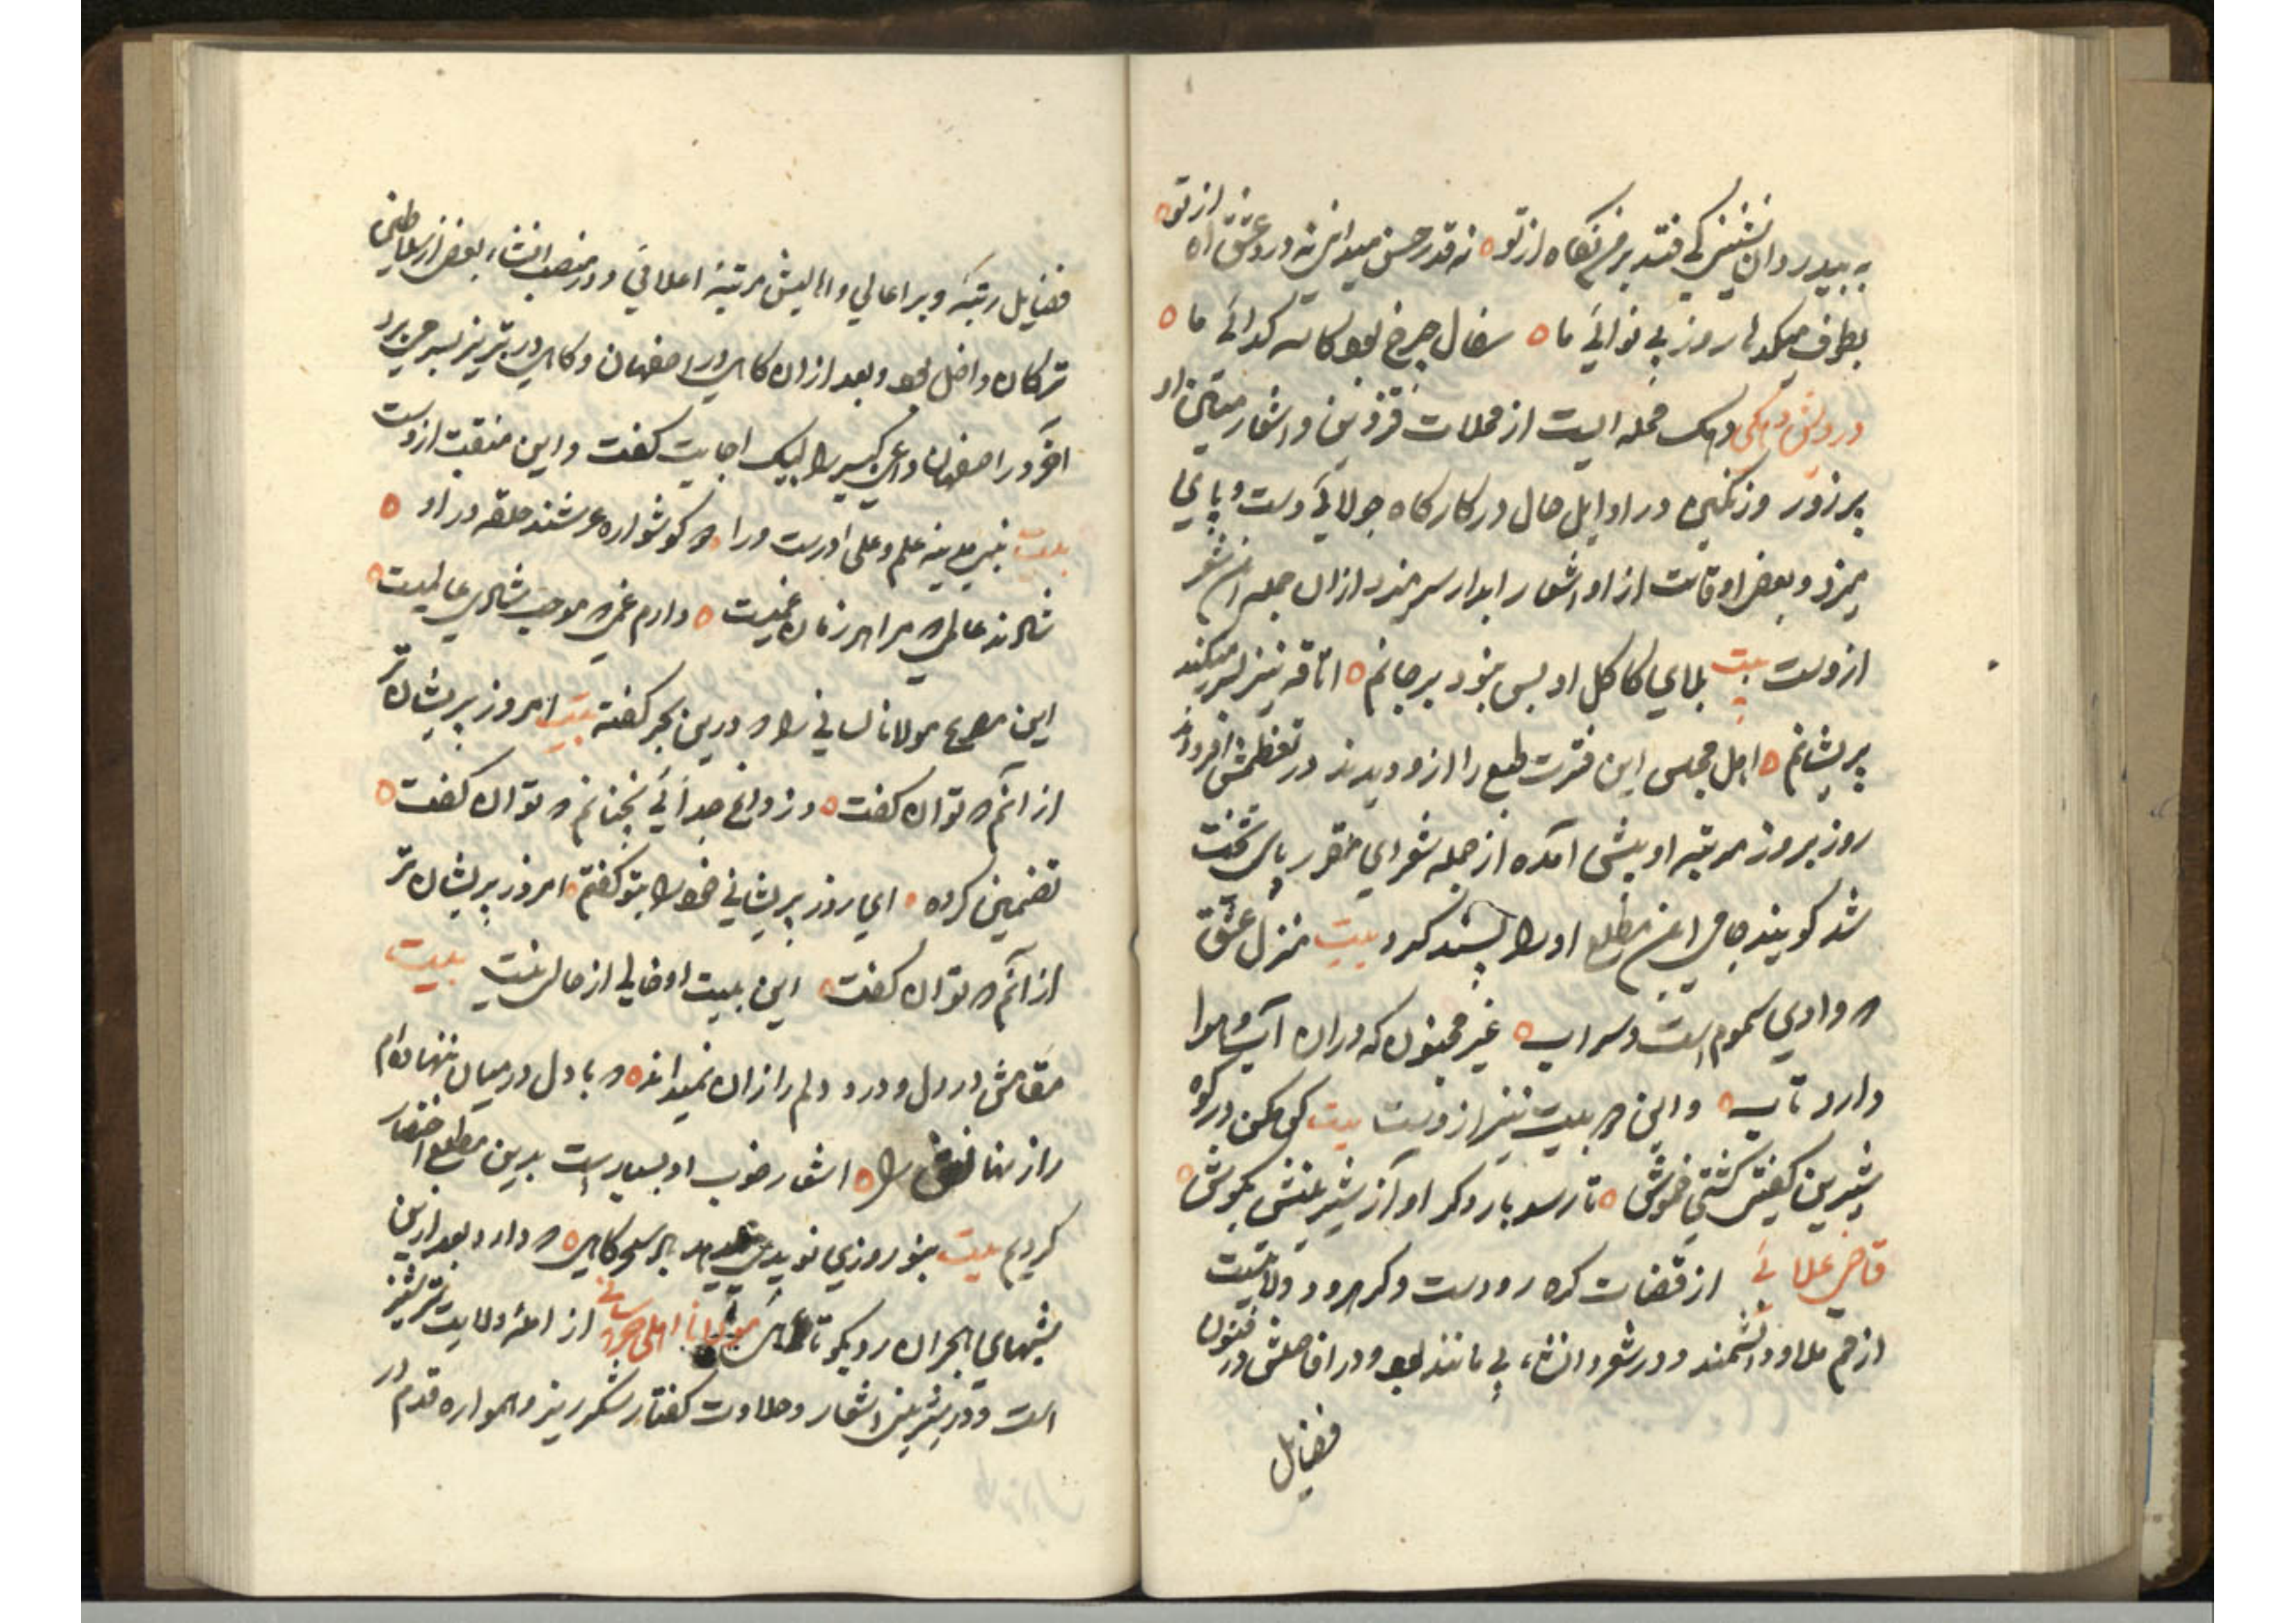 به بیدردان نشینی کی فتد بر من نگاه از تو ه نه قدر حسن میدانی نه درد عشق آه از تو ه
بطرف میکدها روز بی نوائی ما ه سفال چرخ بود کاسه کدائی ما ه
درویش دهکی دهک محله ایست از محلات قزوین و اشعار متین او
پرزور و رنکین در اوایل حال در کارکاه جولائی دست و پایی
میزد و بعض اوقات از او اشعار ابدار سر میزد ازان جمله این شعر
ازوست بیت بلای کاکل او بس نبود بر جانم ه اتاقه نیز بسر میکند
پریشانم ه اهل مجلس این قدرت طبع را ازو دیدند در تعظیمش افزودند
روز بروز مرتبه او بیش امده از جمله شعرای مقرر پای تخت
شد کویند جامی این مطلع او را پسند کرد بیت منزل عشق
که وادی سموم است و سراب ه غیر مجنون که دران آب و هوا
دارد تاب ه و این بیت نیز ازوست بیت کوهکن در کوه
شیرین کفتش کشتی خموش ه تا رسد بار دکر اواز شیرینش بکوش ه
قاضی علائی از قضات کره رودست و کره رود ولایتیست
از قم ملا و دانشمند و در شعر و انشاء بی مانند بود و در افاضلش در فنون
فضایل
فضایل رتبه و بر اعالی و اهالیش مرتبهٔ اعلائی و در منصب انشاء بعض از سلاطین
ترکمان داخل بود و بعد ازان کاهی در اصفهان و کاهی در تبریز بسر می برد
اخر در اصفهان داعی کبیر را لبیک اجابت کفت و این منقبت ازوست
بیت نبی مدینه علم و علی درست ورا که کوشواره عرشند حلقه در او ه
شادند عالمی که مرا هر زمان غمیست ه دارم غمی که موجب شادی عالمیست ه
این مصرع مولانا لسانی را که درین بحر کفته بیت امروز پریشان تر
از انم که توان کفت ه وز داغ جدائی نچنانم که توان کفت ه
تضمین کرده ه ای روز پریشانی خود را بتو کفتم ه امروز پریشان تر
از آنم که توان کفت ه این بیت او خالی از حالی نیست بیت
مقامش در دل و درد دلم را زان نمیداند ه که با دل در میان ننهاده‌ام
راز نهانش را ه اشعار خوب او بسیارست بدین مطلع اختصار
کردیم بیت بنوروزی نوید هر سحرکاهی ه که دارد بعد ازین
شبهای هجران رو بکوتاهی مولانا اهلی خراسانی از اهل ولایت ترشیز
است و در شیرینی اشعار و حلاوت کفتار شکرریز و همواره قدم در